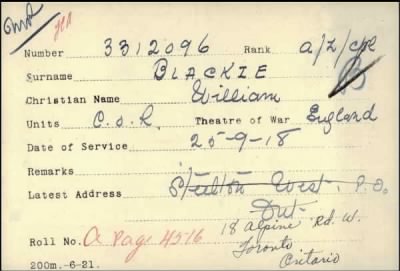 Number 3312096 Rank a/L/cpl
Surname BLACKIE
Christian Name William
Units C.O.R. Theatre of War England
Date of Service 25-9-18
B
Remarks
Latest Address West, P.O.
Ont.
18 Alpine Rd. W.
Toronto
Ontario
Roll No. A Page 4516
200m.-6-21.